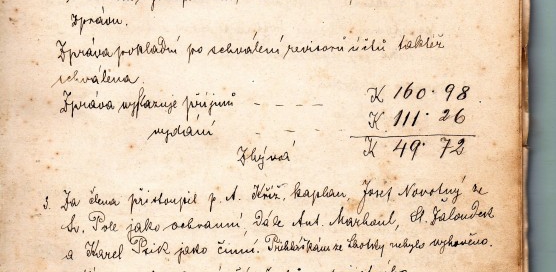 Zprávu.
Zpráva pokladní po schválení revisorů účtů taktéž
schválena.
Zpráva vykazuje příjmů - - - - K 160·98
vydání - - K 111·26
Zbývá K 49·72
3. Za člena přistoupil p. A. Kříž, kaplan, Josef Novotný ze
Sv. Pole jako ochranní, dále Ant. Marhoul, St. Žaloudek
a Karel jako činní. Přihláškám ze nebylo vyhověno.